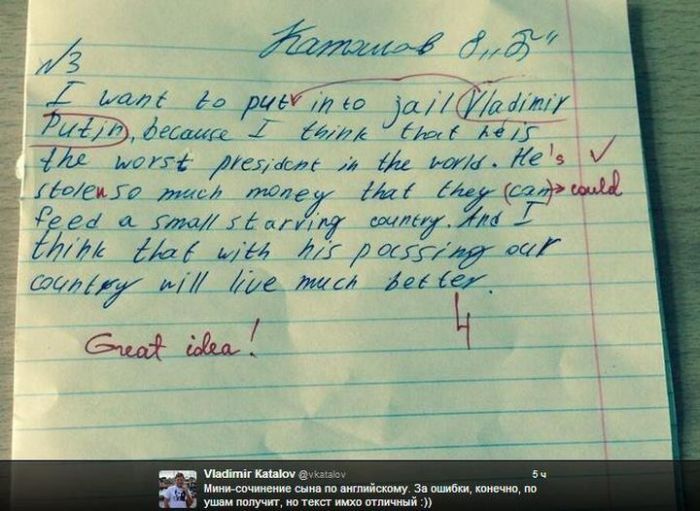 Каталов 8 „Б“
№3
I want to put into jail Vladimir
Putin, because I think that he is
the worst president in the world. He's ✓
stolen so much money that they (can)→could
feed a small starving country. And I
think that with his passing our
country will live much better.
Great idea! 4
Vladimir Katalov @vkatalov 5 ч
Мини-сочинение сына по английскому. За ошибки, конечно, по
ушам получит, но текст имхо отличный :))